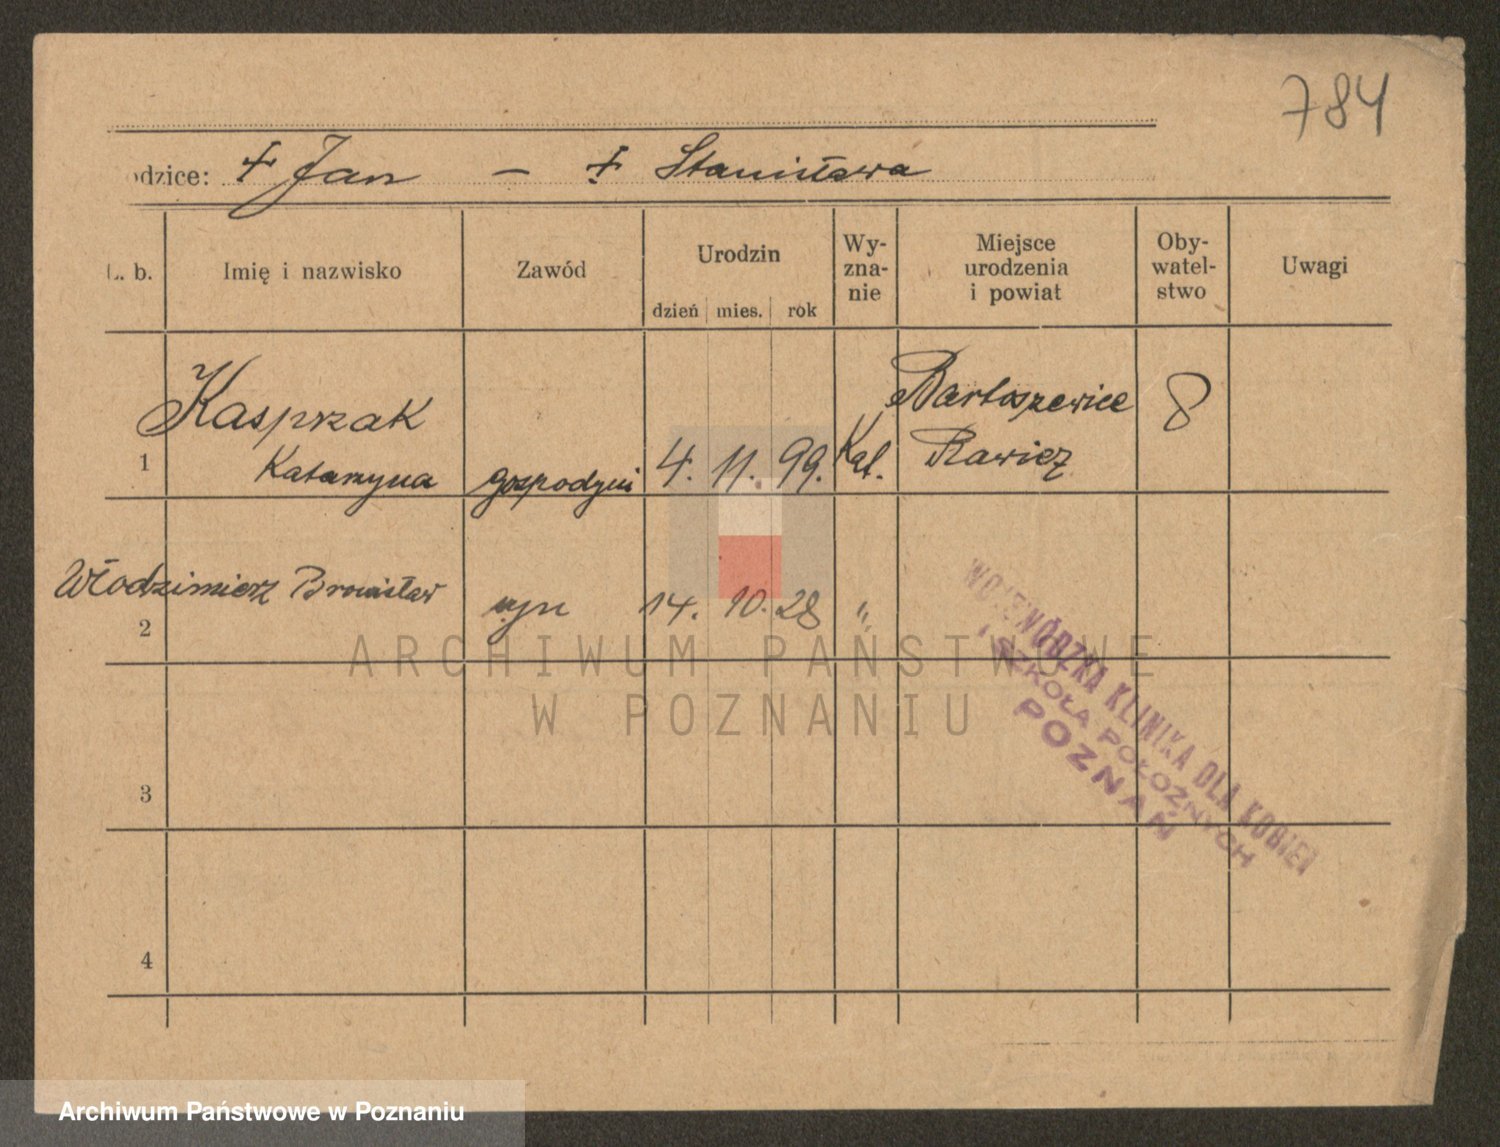 784
odzice: + Jan – + Stanisława
L. b. Imię i nazwisko Zawód Urodzin dzień mies. rok Wy-zna-nie Miejsce urodzenia i powiat Oby-watel-stwo Uwagi
Kasprzak Bartoszewice 8
1 Katarzyna gospodyni 4. 11. 99. Kat. Rawicz
Włodzimierz Bronisław syn 14. 10. 28 "
2
WOJEWÓDZKA KLINIKA DLA KOBIET
I SZKOŁA POŁOŻNYCH
POZNAŃ
ARCHIWUM PAŃSTWOWE
W POZNANIU
3
4
Archiwum Państwowe w Poznaniu